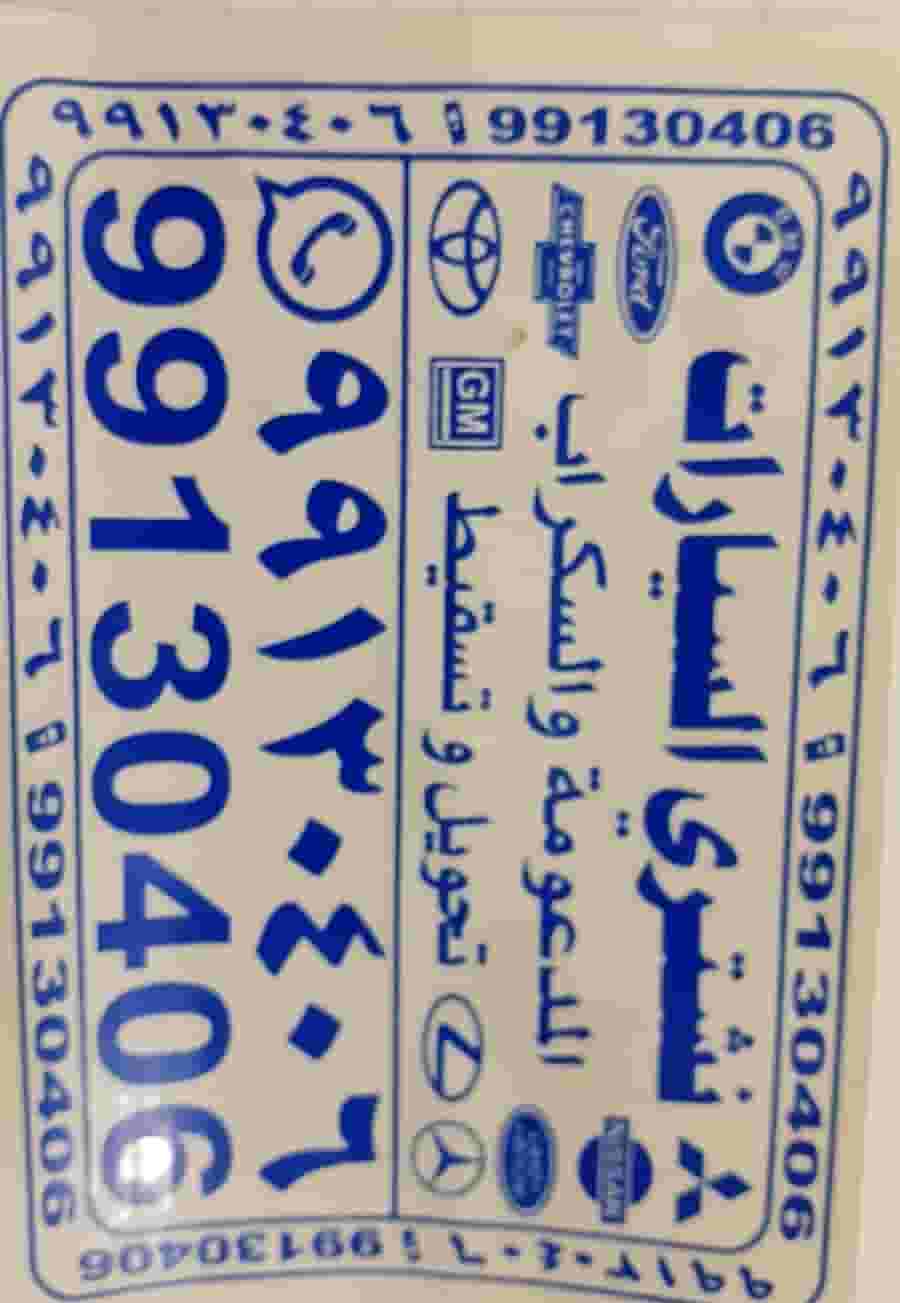 ٩٩١٣٠٤٠٦ 99130406
نشتري السيارات
المدعومة والسكراب
تحويل و تسقيط
BMW
Ford
CHEVROLET
GM
NISSAN
٩٩١٣٠٤٠٦
99130406
٩٩١٣٠٤٠٦ 99130406
٩٩١٣٠٤٠٦ 99130406
٩٩١٣٠٤٠٦ 99130406